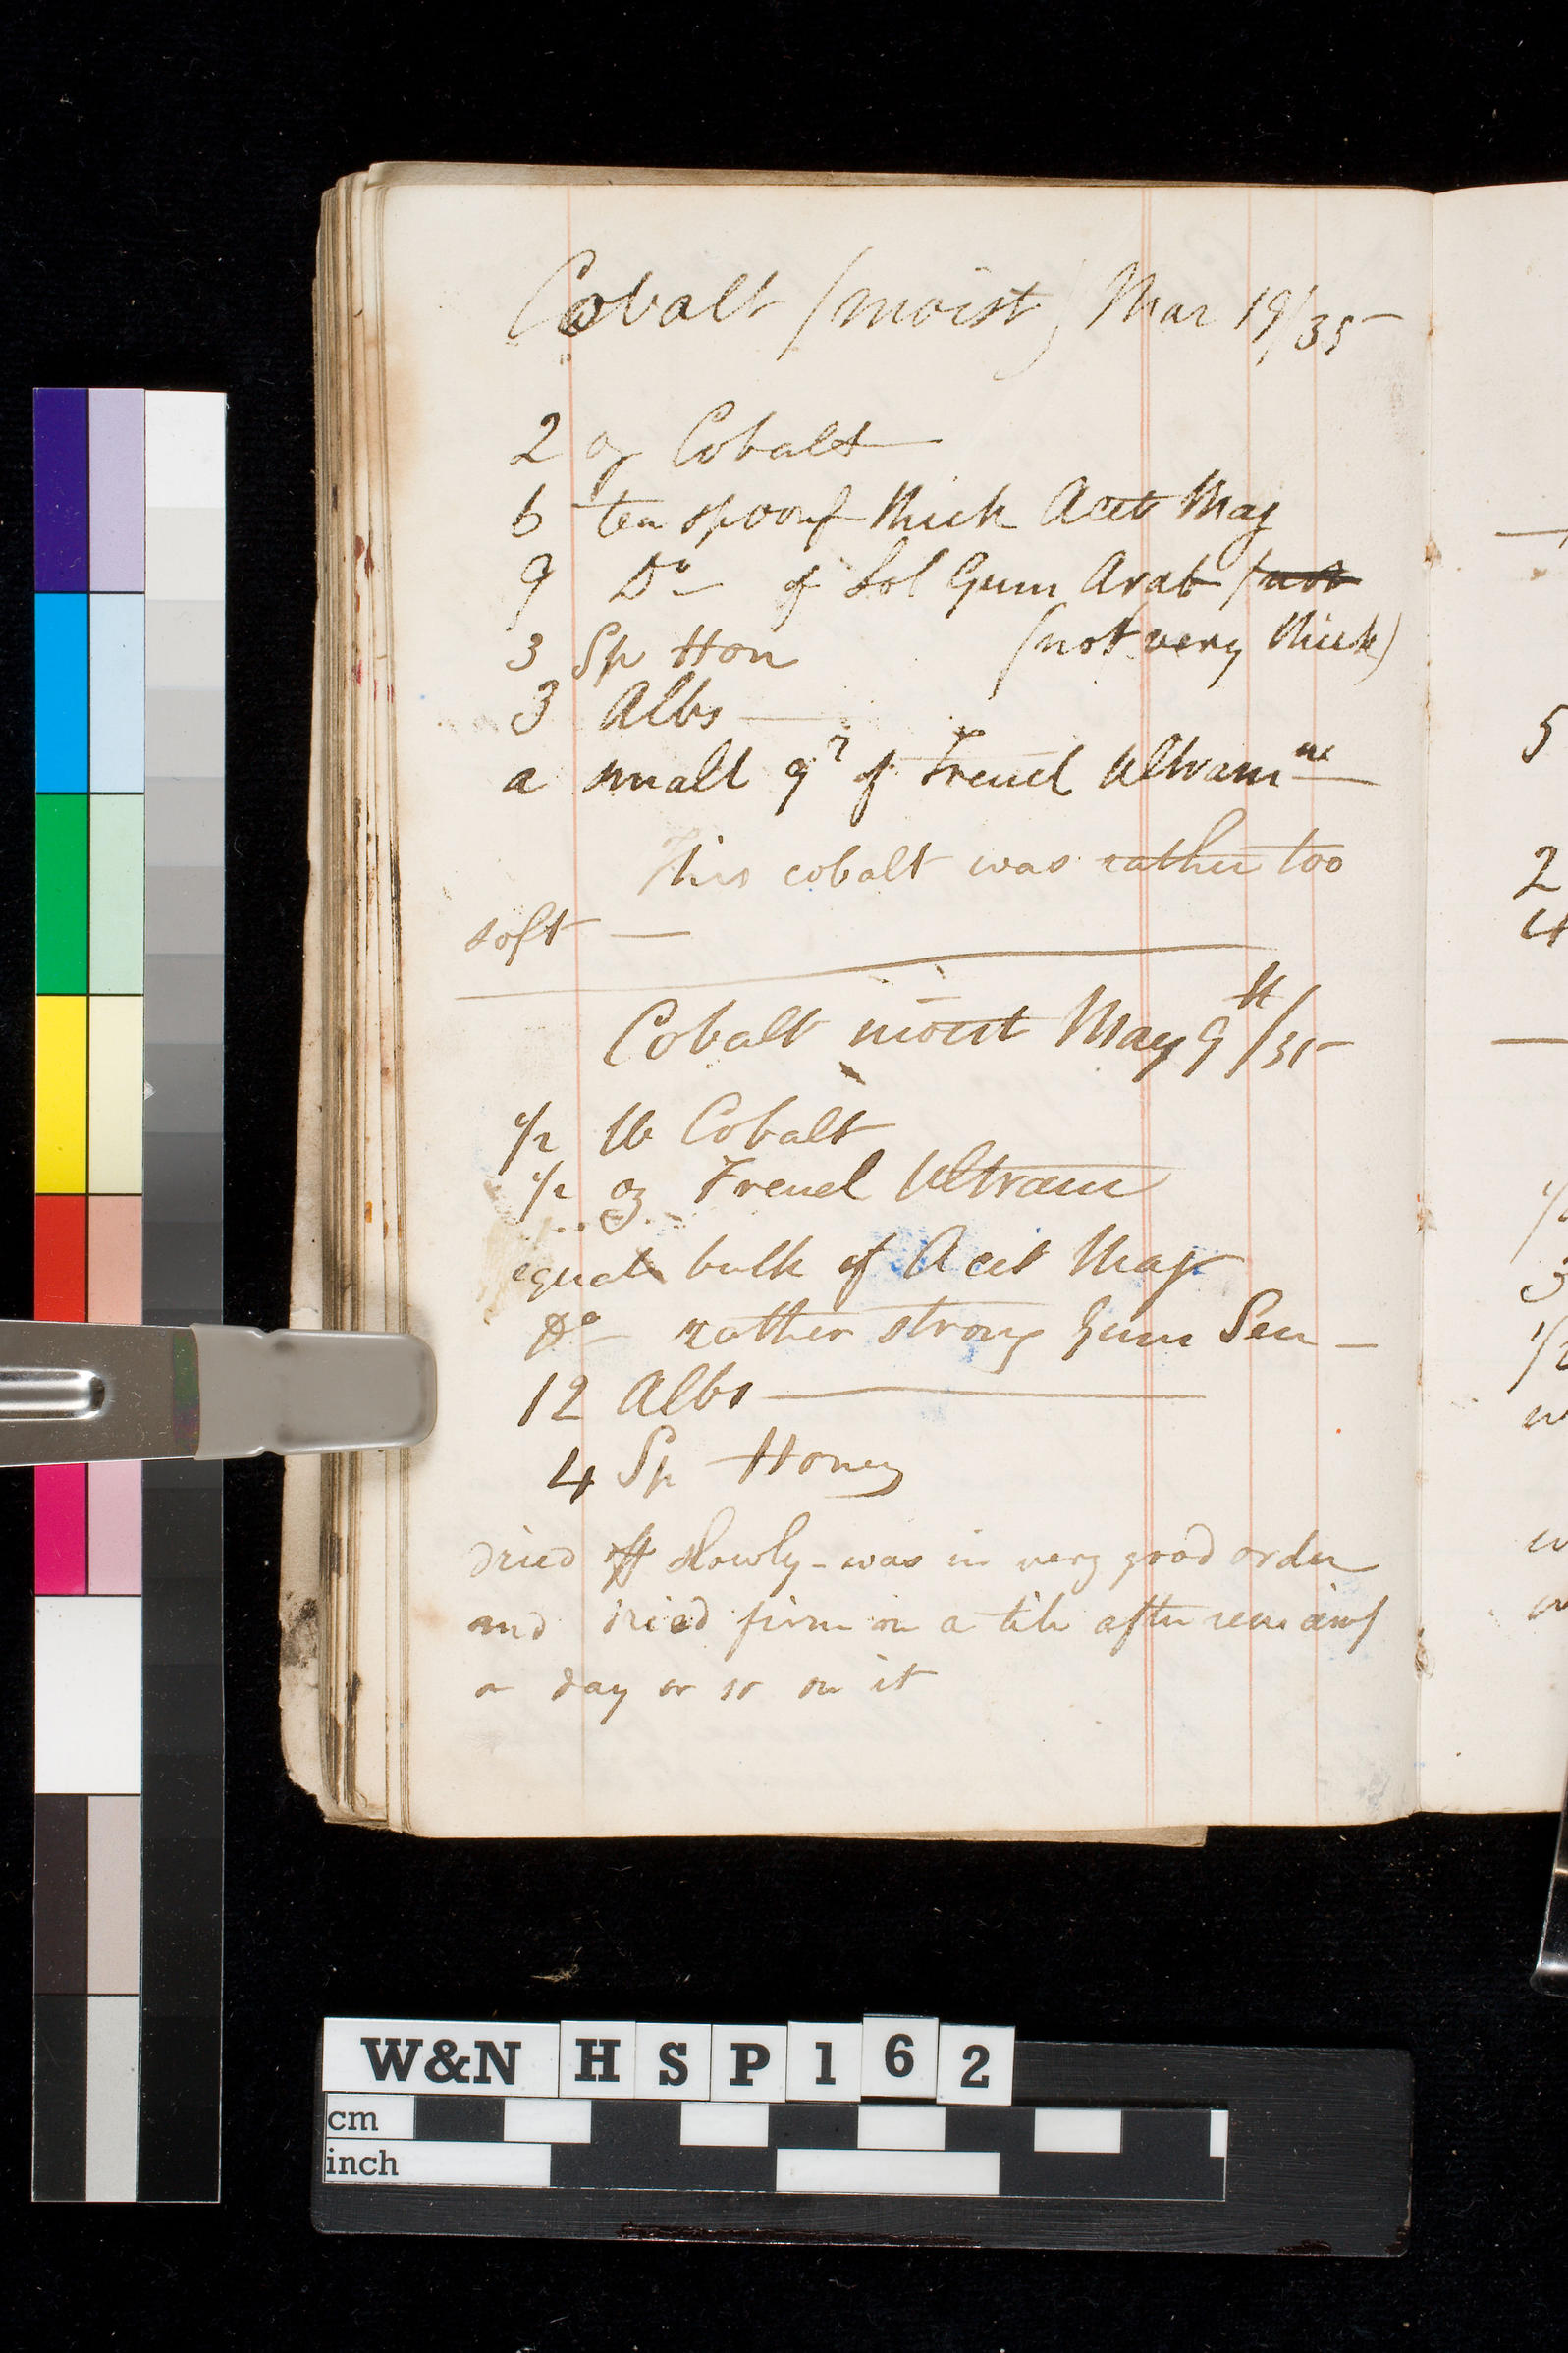 Cobalt (moist) Mar 19/35
2 oz Cobalt
6 tea spoonf thick Acet Mag
9 Do of Sol Gum Arab (not
3 Sp Hon (not very thick)
3 Albs
a small qy of French Ultramne
This cobalt was rather too
soft
Cobalt moist May 9th/35
1/2 lb Cobalt
1/2 oz French Ultram
equal bulk of Acet Mag
Do rather strong Gum Sen
12 Albs
4 Sp Honey
dried off slowly - was in very good order
and dried firm on a tile after remaing
a day or so on it
5
2
4
3
W&N HSP162
cm
inch